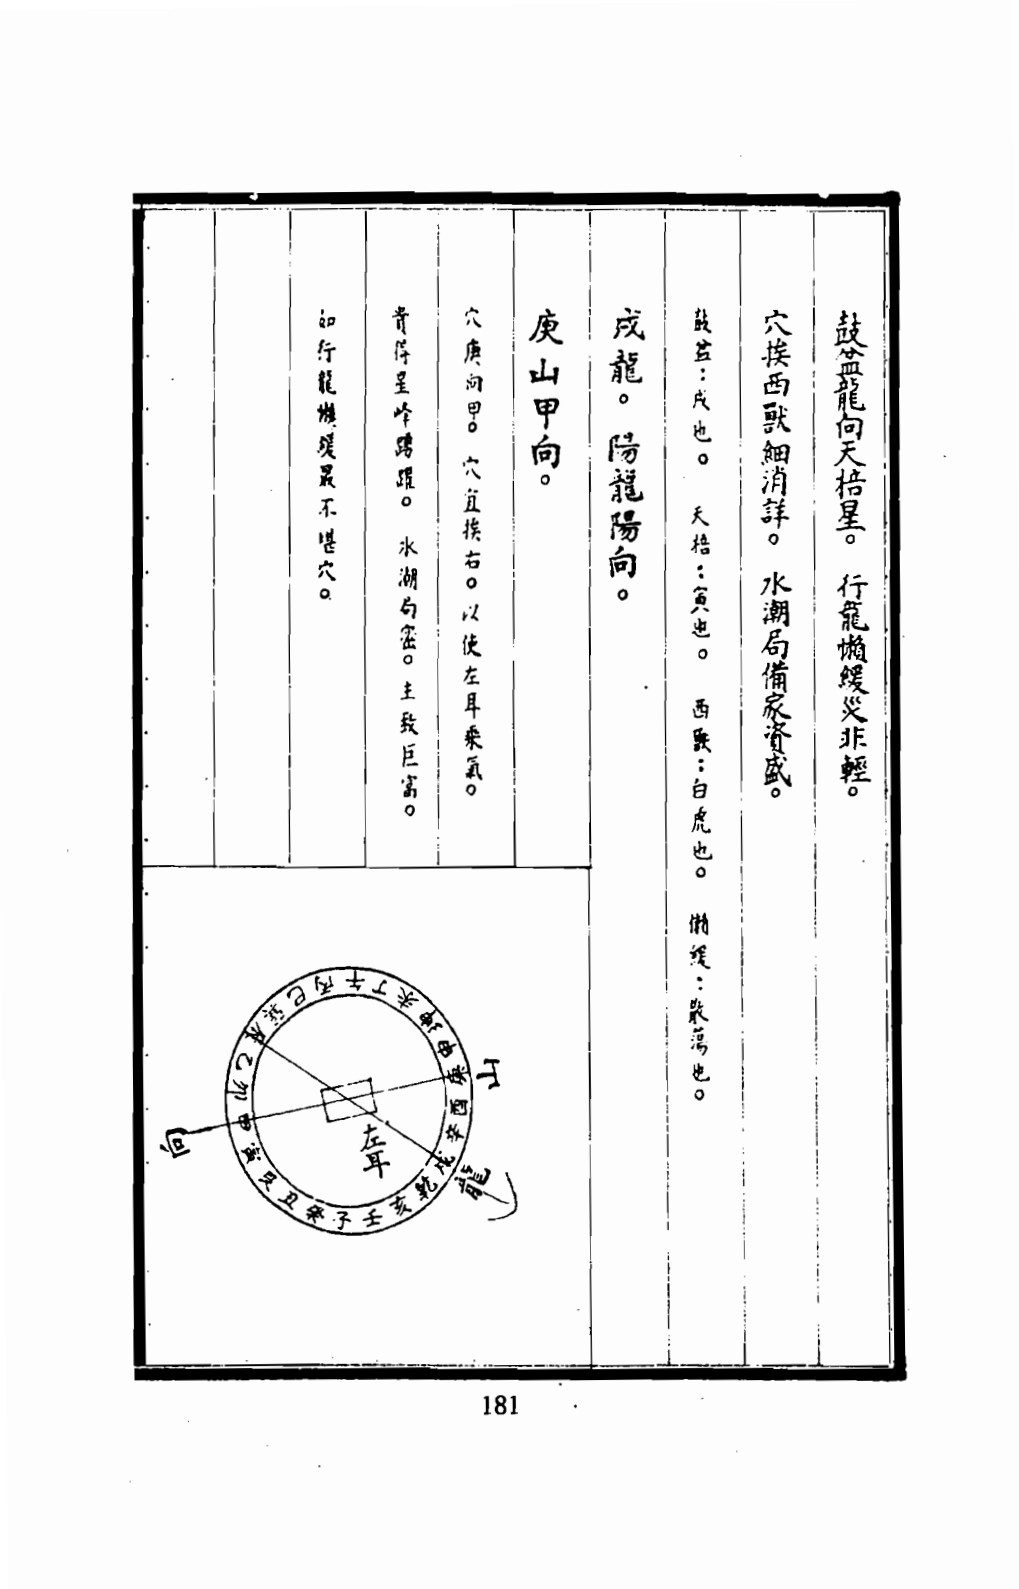 鼓盆龍向天棓星。　行龍懶緩災非輕。
穴挨西獸細消詳。　水潮局備家資盛。
鼓盆：戌也。　天棓：寅也。　西獸：白虎也。　懶緩：散蕩也。
戌龍。　陽龍陽向。
庚山甲向。
穴庚向甲。　穴宜挨右。以使左耳乘氣。
貴得星峰踴躍。　水潮局密。主致巨富。
如行龍懶緩最不堪穴。
午丁未坤申庚酉辛戌乾亥壬子癸丑艮寅甲卯乙辰巽巳丙
山
向
左耳
龍
181